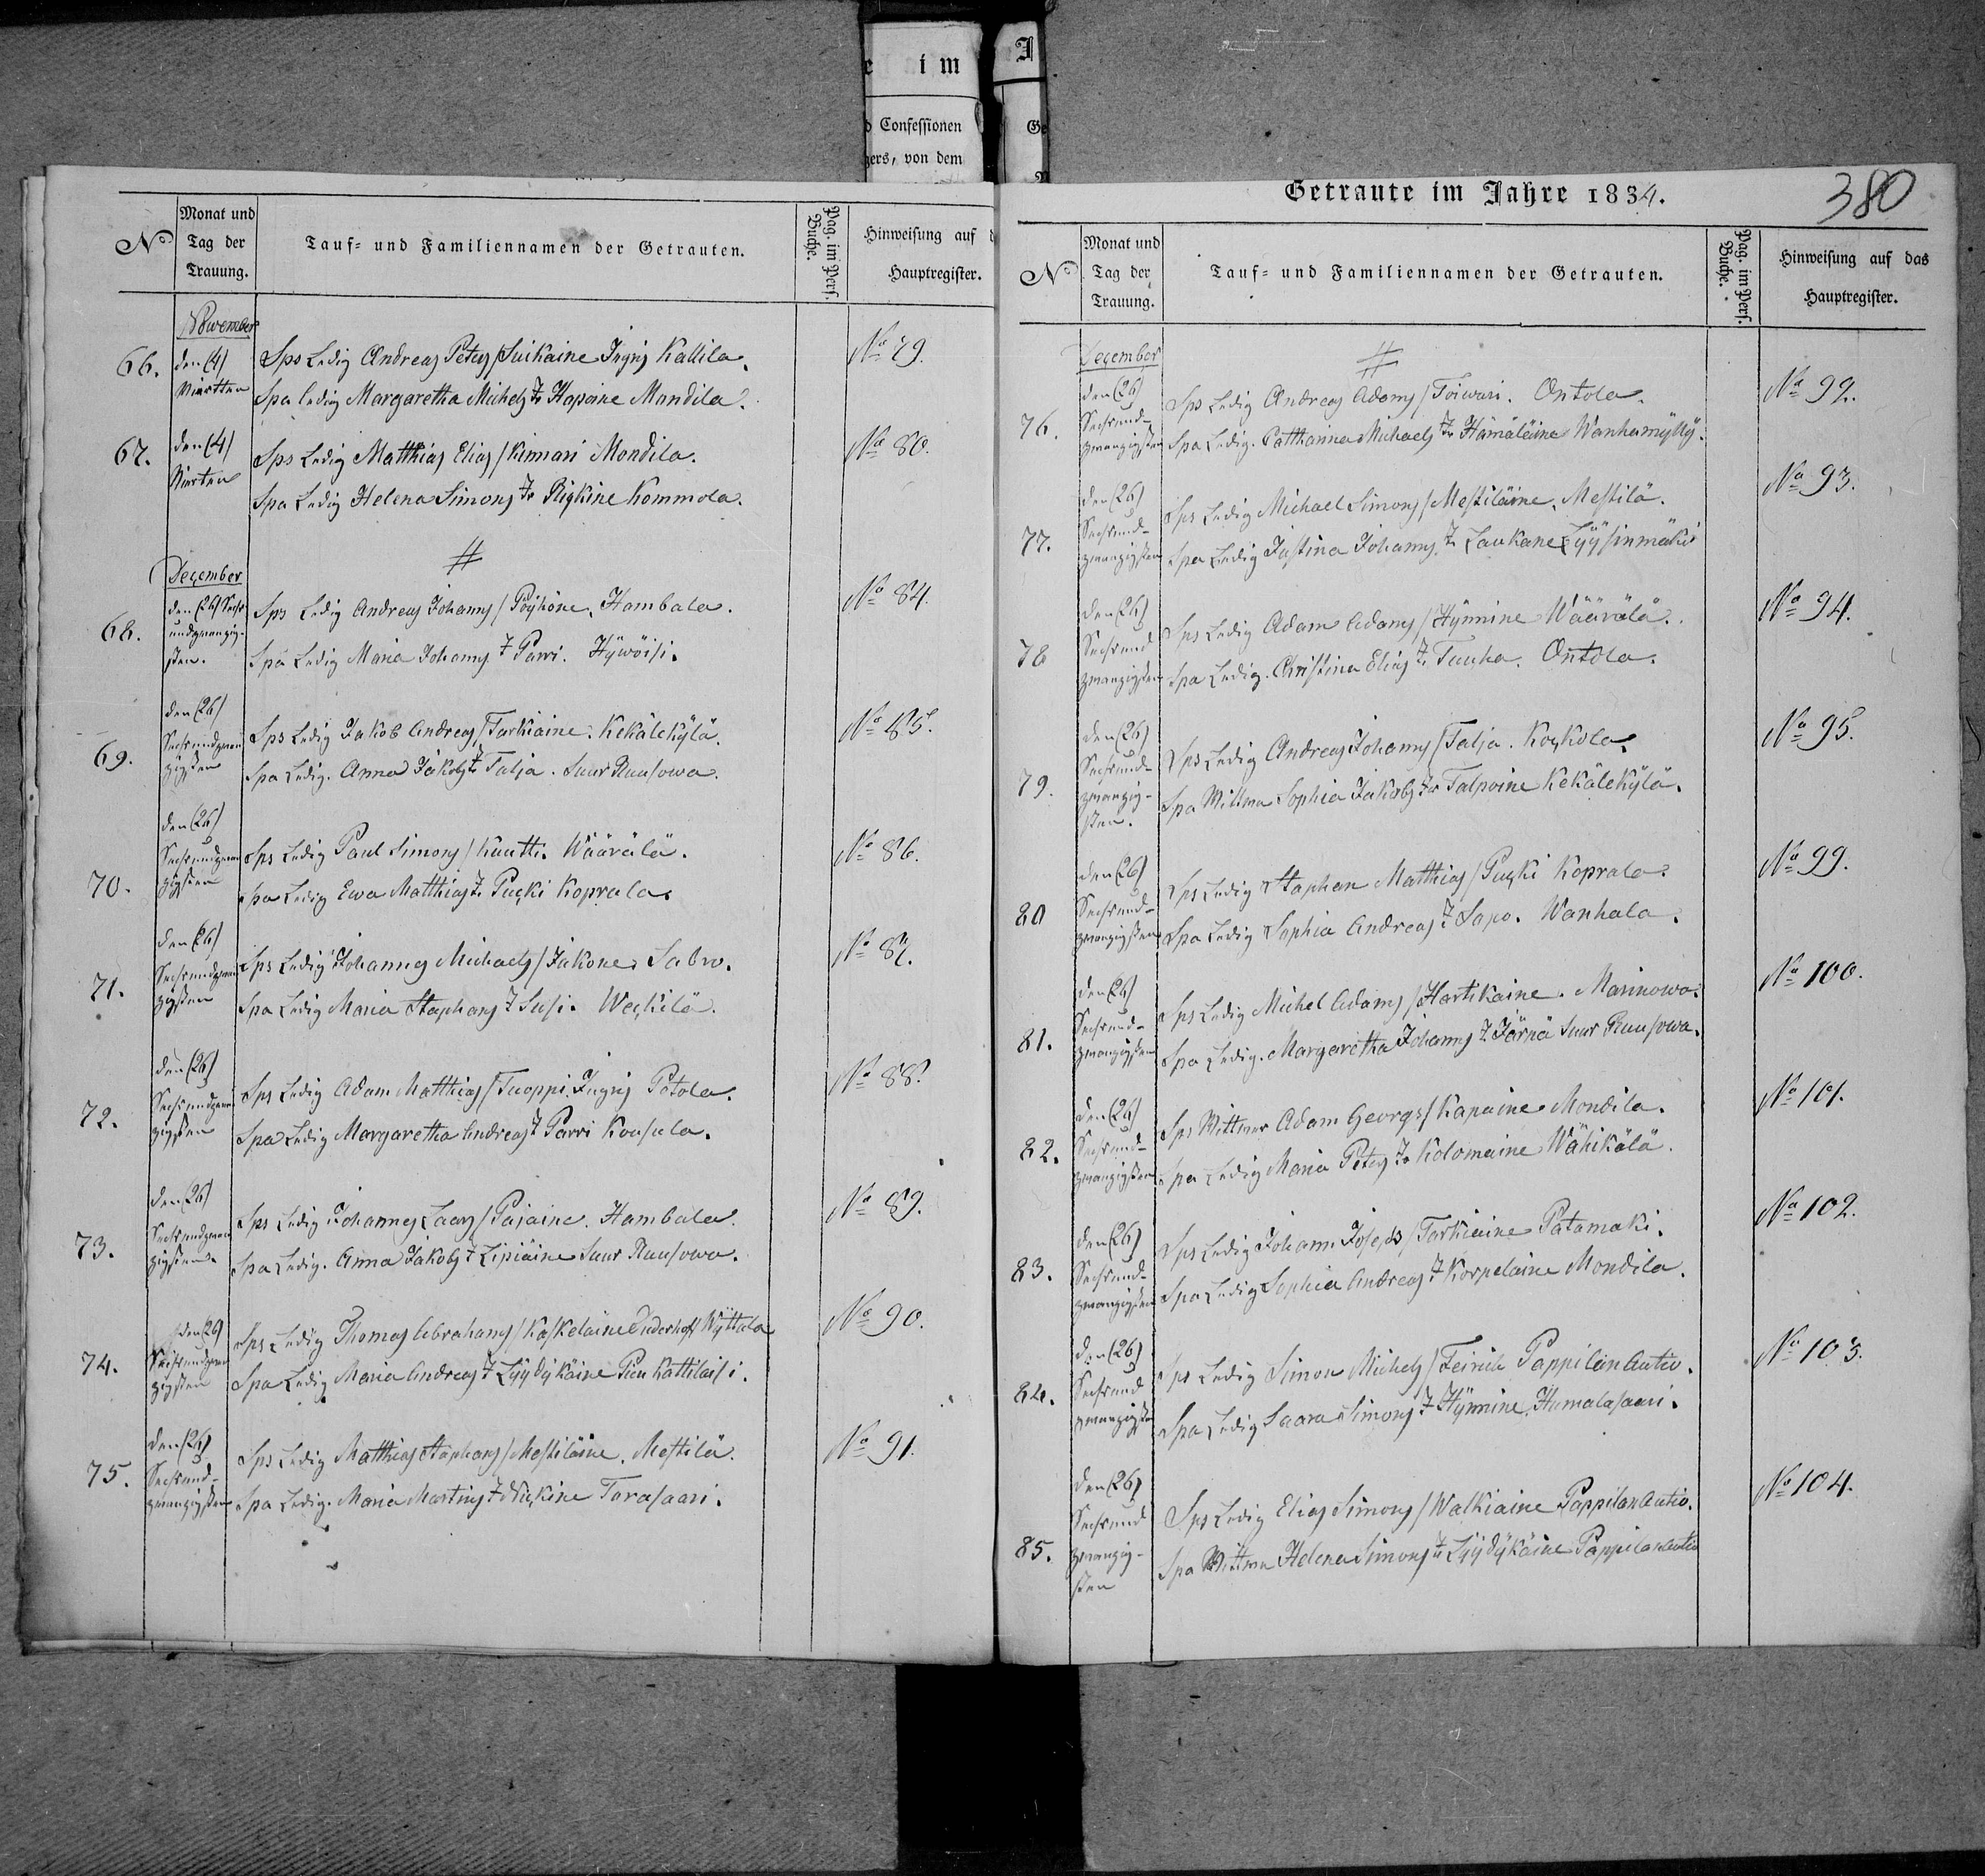 im
Confessionen
von dem
No
Monat und
Tag der
Trauung.
Tauf- und Familiennamen der Getrauten.
Pag. im Pers. Buche.
Hinweisung auf
Hauptregister.
November
66. den (4) Sps Ledig Andreas Peters / Suikaine Ingris Kallila. No 79.
Vierten Spa ledig Margaretha Michels Tr Hapoine Mondila.
67. den (4) Sps Ledig Matthias Elias / Kinnari Mondila. No 80.
Vierten Spa Ledig Helena Simons Tr Kommola.
December
68. den (26) Sechs Sps Ledig Andreas Johanns / Pöyhöne. Hambala. No 84.
undzwanzig-
sten. Spa Ledig Maria Johanns T Parri. Hÿwöisi.
den (26)
69. Sechsundzwan Sps Ledig Jakob Andreas / Tarkiaine. Kekälekÿlä. No 85.
zigsten Spa Ledig. Anna Jakobs T Talja. Suur Ruusowa.
den (26)
70. Sechsundzwan Sps Ledig Paul Simons / Kuutti. Wäärälä. No 86.
zigsten Spa Ledig Ewa Matthias Tr Puçki Koprala.
den (26)
71. Sechsundzwan Sps Ledig Johannes Michaels / Jäkone. No 87.
zigsten Spa Ledig Maria Staphans T Susi.
den (26)
72. Sechsundzwan Sps Ledig Adam Matthias / Tuoppi. Ingris Potola. No 88.
zigsten Spa Ledig Margaretha Andreas T Parri Kousula.
den (26)
73. Sechsundzwan Sps Ledig Johannes Laars / Pajaine. Hambala. No 89.
zigsten. Spa Ledig. Anna Jakobs T Lipiäine Suur Ruusowa.
den (26)
74. Sechsundzwan Sps Ledig Thomas Abrahams / Koskelaine No 90.
zigsten Spa Ledig Maria Andreas T Lÿÿdÿkäine Pien Kattilaisi.
den (26)
75. Sechsund- Sps Ledig Matthias Staphans / Mestiläine. Mestilä. No 91.
zwanzigsten Spa Ledig. Maria Martins T Torasaari.
Getraute im Jahre 1834.
380
No
Monat und
Tag der
Trauung.
Tauf- und Familiennamen der Getrauten.
Pag. im Pers. Buche.
Hinweisung auf das
Hauptregister.
December
den (26)
76. Sechsund- Sps Ledig Andreas Adams / Toiwari. Ontola. No 92.
zwanzigsten Spa Ledig. Cattharina Michaels Tr Hämäläine Wanhamÿllÿ.
den (26)
77. Sechsund- Sps Ledig Michael Simons / Mestiläine. Mestilä. No 93.
zwanzigsten Spa Ledig Justina Johanns T Laukane Lÿÿsinmäki
den (26)
78 Sechsund Sps Ledig Adam Adams / Hÿnnine Wäärälä. No 94.
zwanzigsten Spa Ledig. Christina Elias T Tuuha. Ontola.
den (26)
79. Sechsund- Sps Ledig Andreas Johanns / Talja. No 95.
zwanzig-
sten. Spa Wittwe Sophia Jakobs Tr Talpoine Kekälekÿlä.
den (26)
80 Sechsund- Sps Ledig Staphan Matthias / Puçki Koprala. No 99.
zwanzigsten Spa Ledig Sophia Andreas T Sapo. Wanhala.
den (26)
81. Sechsund- Sps Ledig Michel Adams / Hartikaine. Marinowa. No 100.
zwanzigsten Spa Ledig. Margaretha Johanns T Järnä Suur Ruusowa.
den (26)
82. Sechsund- Sps Wittwer Adam Georgs / Kapaine Mondila. No 101.
zwanzigsten Spa Ledig Maria Peters Tr Kolomaine Wähikälä.
den (26)
83. Sechsund- Sps Ledig Johann Josephs / Tarkiaine Patamaki. No 102.
zwanzigsten Spa Ledig Sophia Andreas T Korpelaine Mondila.
den (26)
84. Sechsund Sps Ledig Simon Michels / Pappilan Autio. No 103.
zwanzigsten Spa Ledig Saara Simons T Hÿnnine Humalasaari.
den (26)
85. Sechsund Sps Ledig Elias Simons / Walkiaine Pappilan Autio. No 104.
zwanzig-
sten Spa Wittwe Helena Simons T Lÿÿdÿkäine Pappilan Autio